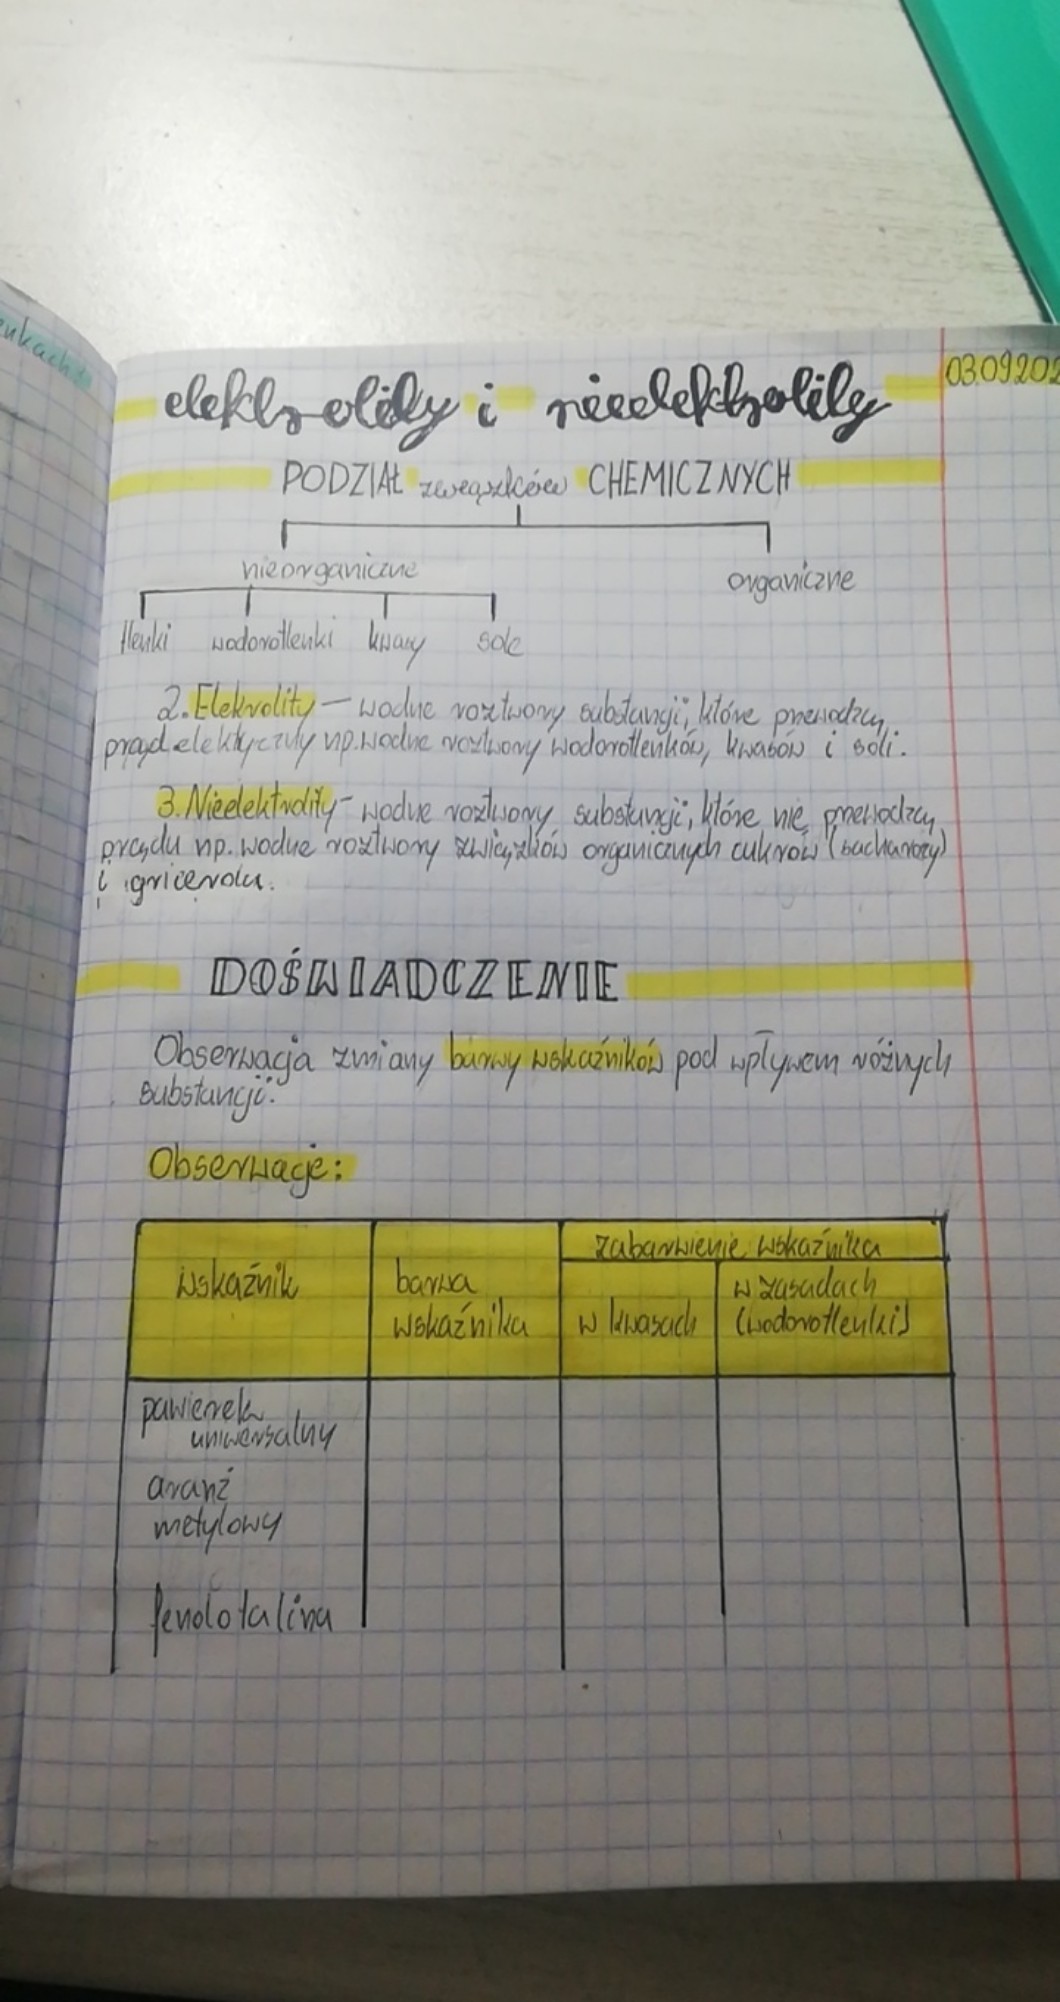 elektrolity i nieelektrolity
03.09.202
PODZIAŁ związków CHEMICZNYCH
nieorganiczne
organiczne
tlenki wodorotlenki kwasy sole
2. Elekrolity – wodne roztwory substancji, które przewodzą
prąd elektryczny np. wodne roztwory wodorotlenków, kwasów i soli.
3. Nieelektrolity – wodne roztwory substancji, które nie przewodzą
prądu np. wodne roztwory związków organicznych cukrow (sacharozy)
i gricerolu.
DOŚWIADCZENIE
Obserwacja zmiany barwy wskaźników pod wpływem różnych
substancji.
Obserwacje:
wskaźnik
barwa
wskaźnika
zabarwienie wskaźnika
w kwasach
w zasadach
(wodorotlenki)
pawierek
uniwersalny
aranż
metylowy
fenolotalina